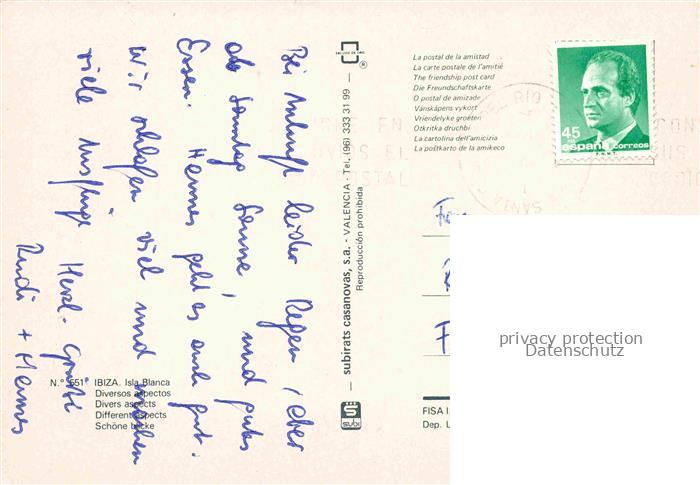 Bei Ankunft leider Regen, aber
ab Sonntag Sonne, und gutes
Essen. Hannes geht es auch gut.
Wir schlafen viel und machen
viele Ausflüge. Herzl. Grüße
Rudi + Hannes
N.° 651 IBIZA. Isla Blanca
Diversos aspectos
Divers aspects
Different aspects
Schöne blicke
— subirats casanovas, s.a. - VALENCIA - Tel. (96) 333 31 99 — ®
Reproducción prohibida
subi
La postal de la amistad
La carte postale de l'amitié
The friendship post card
Die Freundschaftskarte
O postal de amizade
Vänskåpens vykort
Vriendelyke groeten
Otkritka druchbi
La cartolina dell'amicizia
La poŝtkarto de la amikeco
45
PTA
españa correos
F.N.M.T.
FISA I
Dep. L
privacy protection
Datenschutz